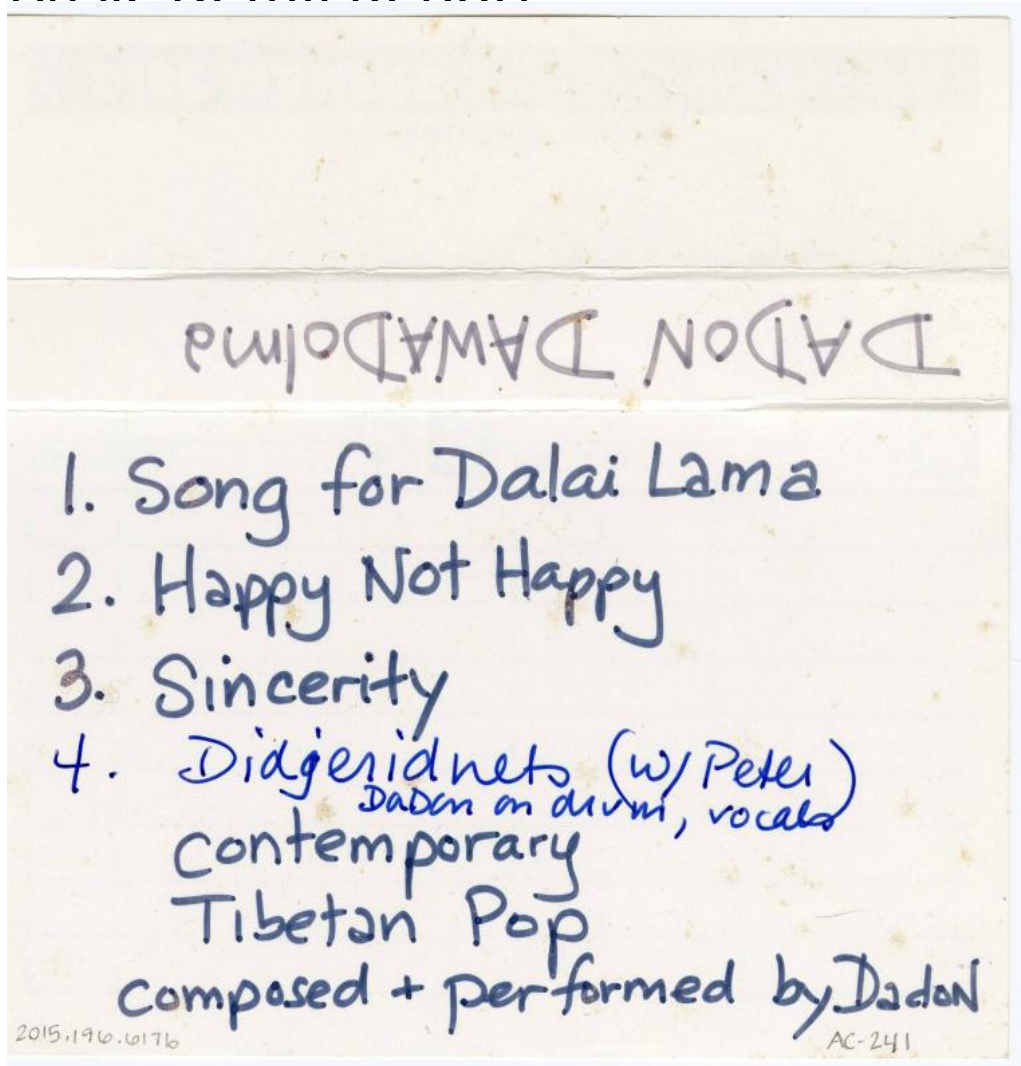 DADON DAWADolma
1. Song for Dalai Lama
2. Happy Not Happy
3. Sincerity
4. Didgeridnets (w/ Peter)
DaDon on drum, vocals
contemporary
Tibetan Pop
composed + performed by DadoN
2015.196.617b
AC-241